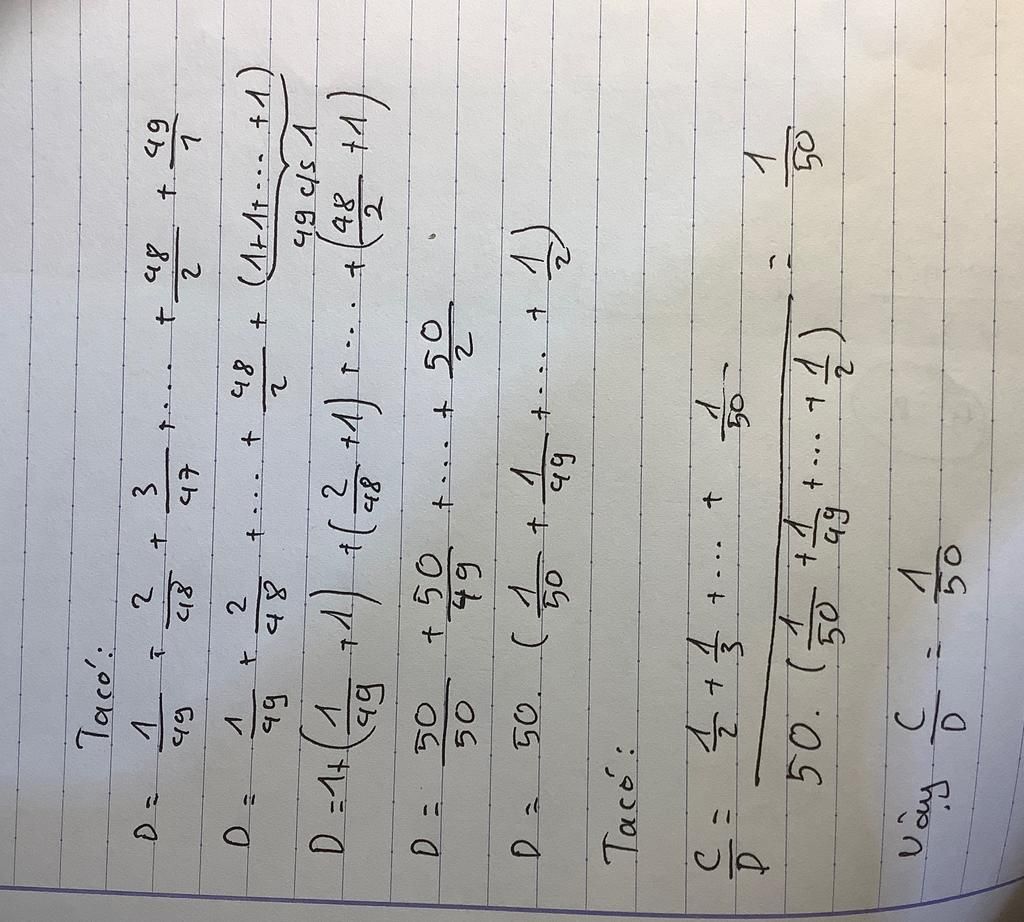 Ta có:
D = 1/49 + 2/48 + 3/47 + .... + 48/2 + 49/1
D = 1/49 + 2/48 + .... + 48/2 + (1+1+... +1)
49 c/s 1
D = 1+(1/49 +1) +(2/48 +1) + ... +(48/2 +1)
D = 50/50 + 50/49 + .... + 50/2
D = 50. (1/50 + 1/49 +... + 1/2)
Ta có:
C/D = (1/2 + 1/3 + ... + 1/50) / (50. (1/50 + 1/49 + ... + 1/2)) = 1/50
Vậy C/D = 1/50